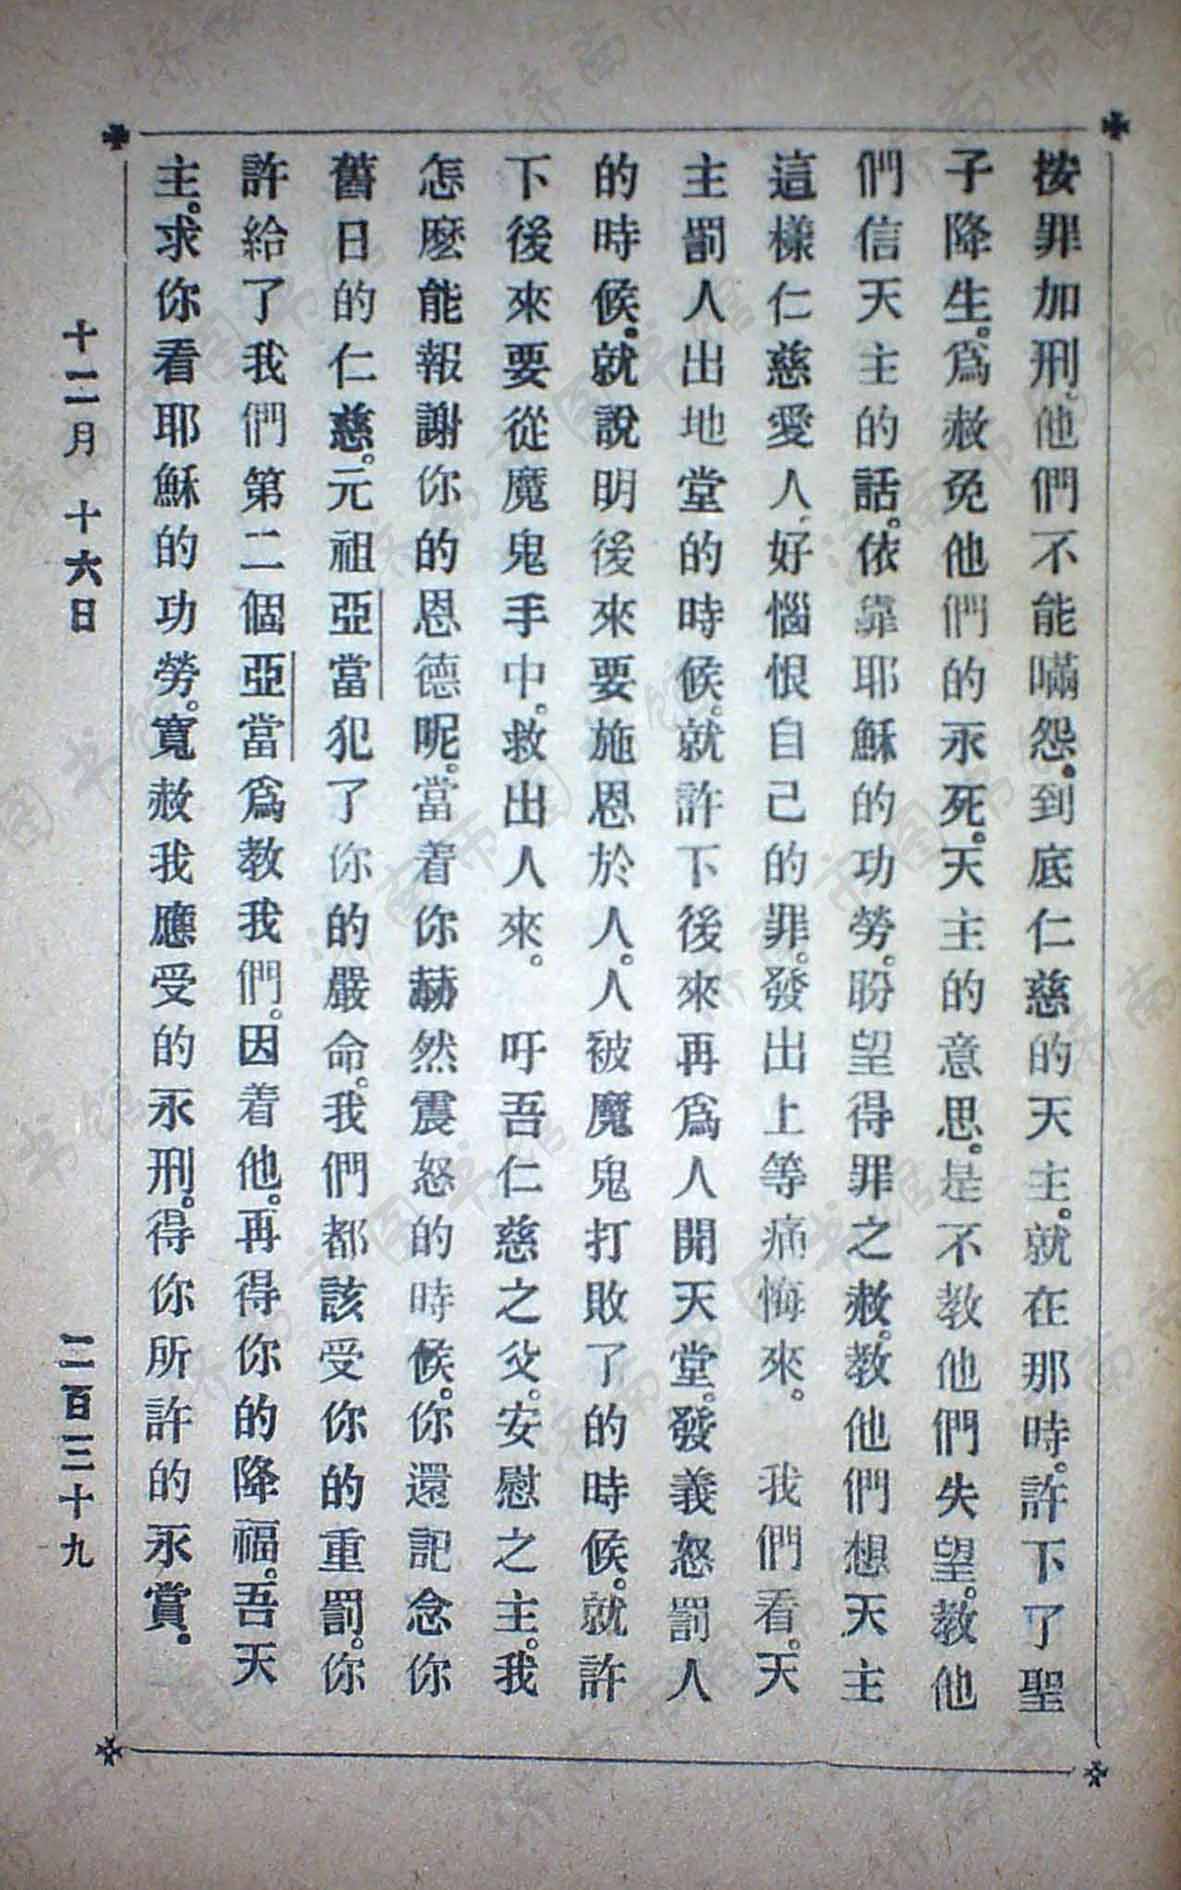 按罪加刑、他們不能嘯怨。到底仁慈的天主。就在那時。許下了聖
子降生。爲赦免他們的永死。天主的意思。是不教他們失望。教他
們信天主的話。依靠耶穌的功勞。盼望得罪之赦。教他們想天主
這樣仁慈愛人、好惱恨自己的罪。發出上等痛悔來。　我們看。天
主罰人出地堂的時候。就許下後來再爲人開天堂。發義怒罰人
的時候。就說明後來要施恩於人。人被魔鬼打敗了的時候。就許
下後來要從魔鬼手中。救出人來。　吁吾仁慈之父。安慰之主。我
怎麽能報謝你的恩德呢。當着你赫然震怒的時候。你還記念你
舊日的仁慈。元祖亞當犯了你的嚴命。我們都該受你的重罰。你
許給了我們第二個亞當爲教我們。因着他。再得你的降福。吾天
主。求你看耶穌的功勞。寬赦我應受的永刑。得你所許的永賞。
十二月 十六日 二百三十九
济南市图书馆